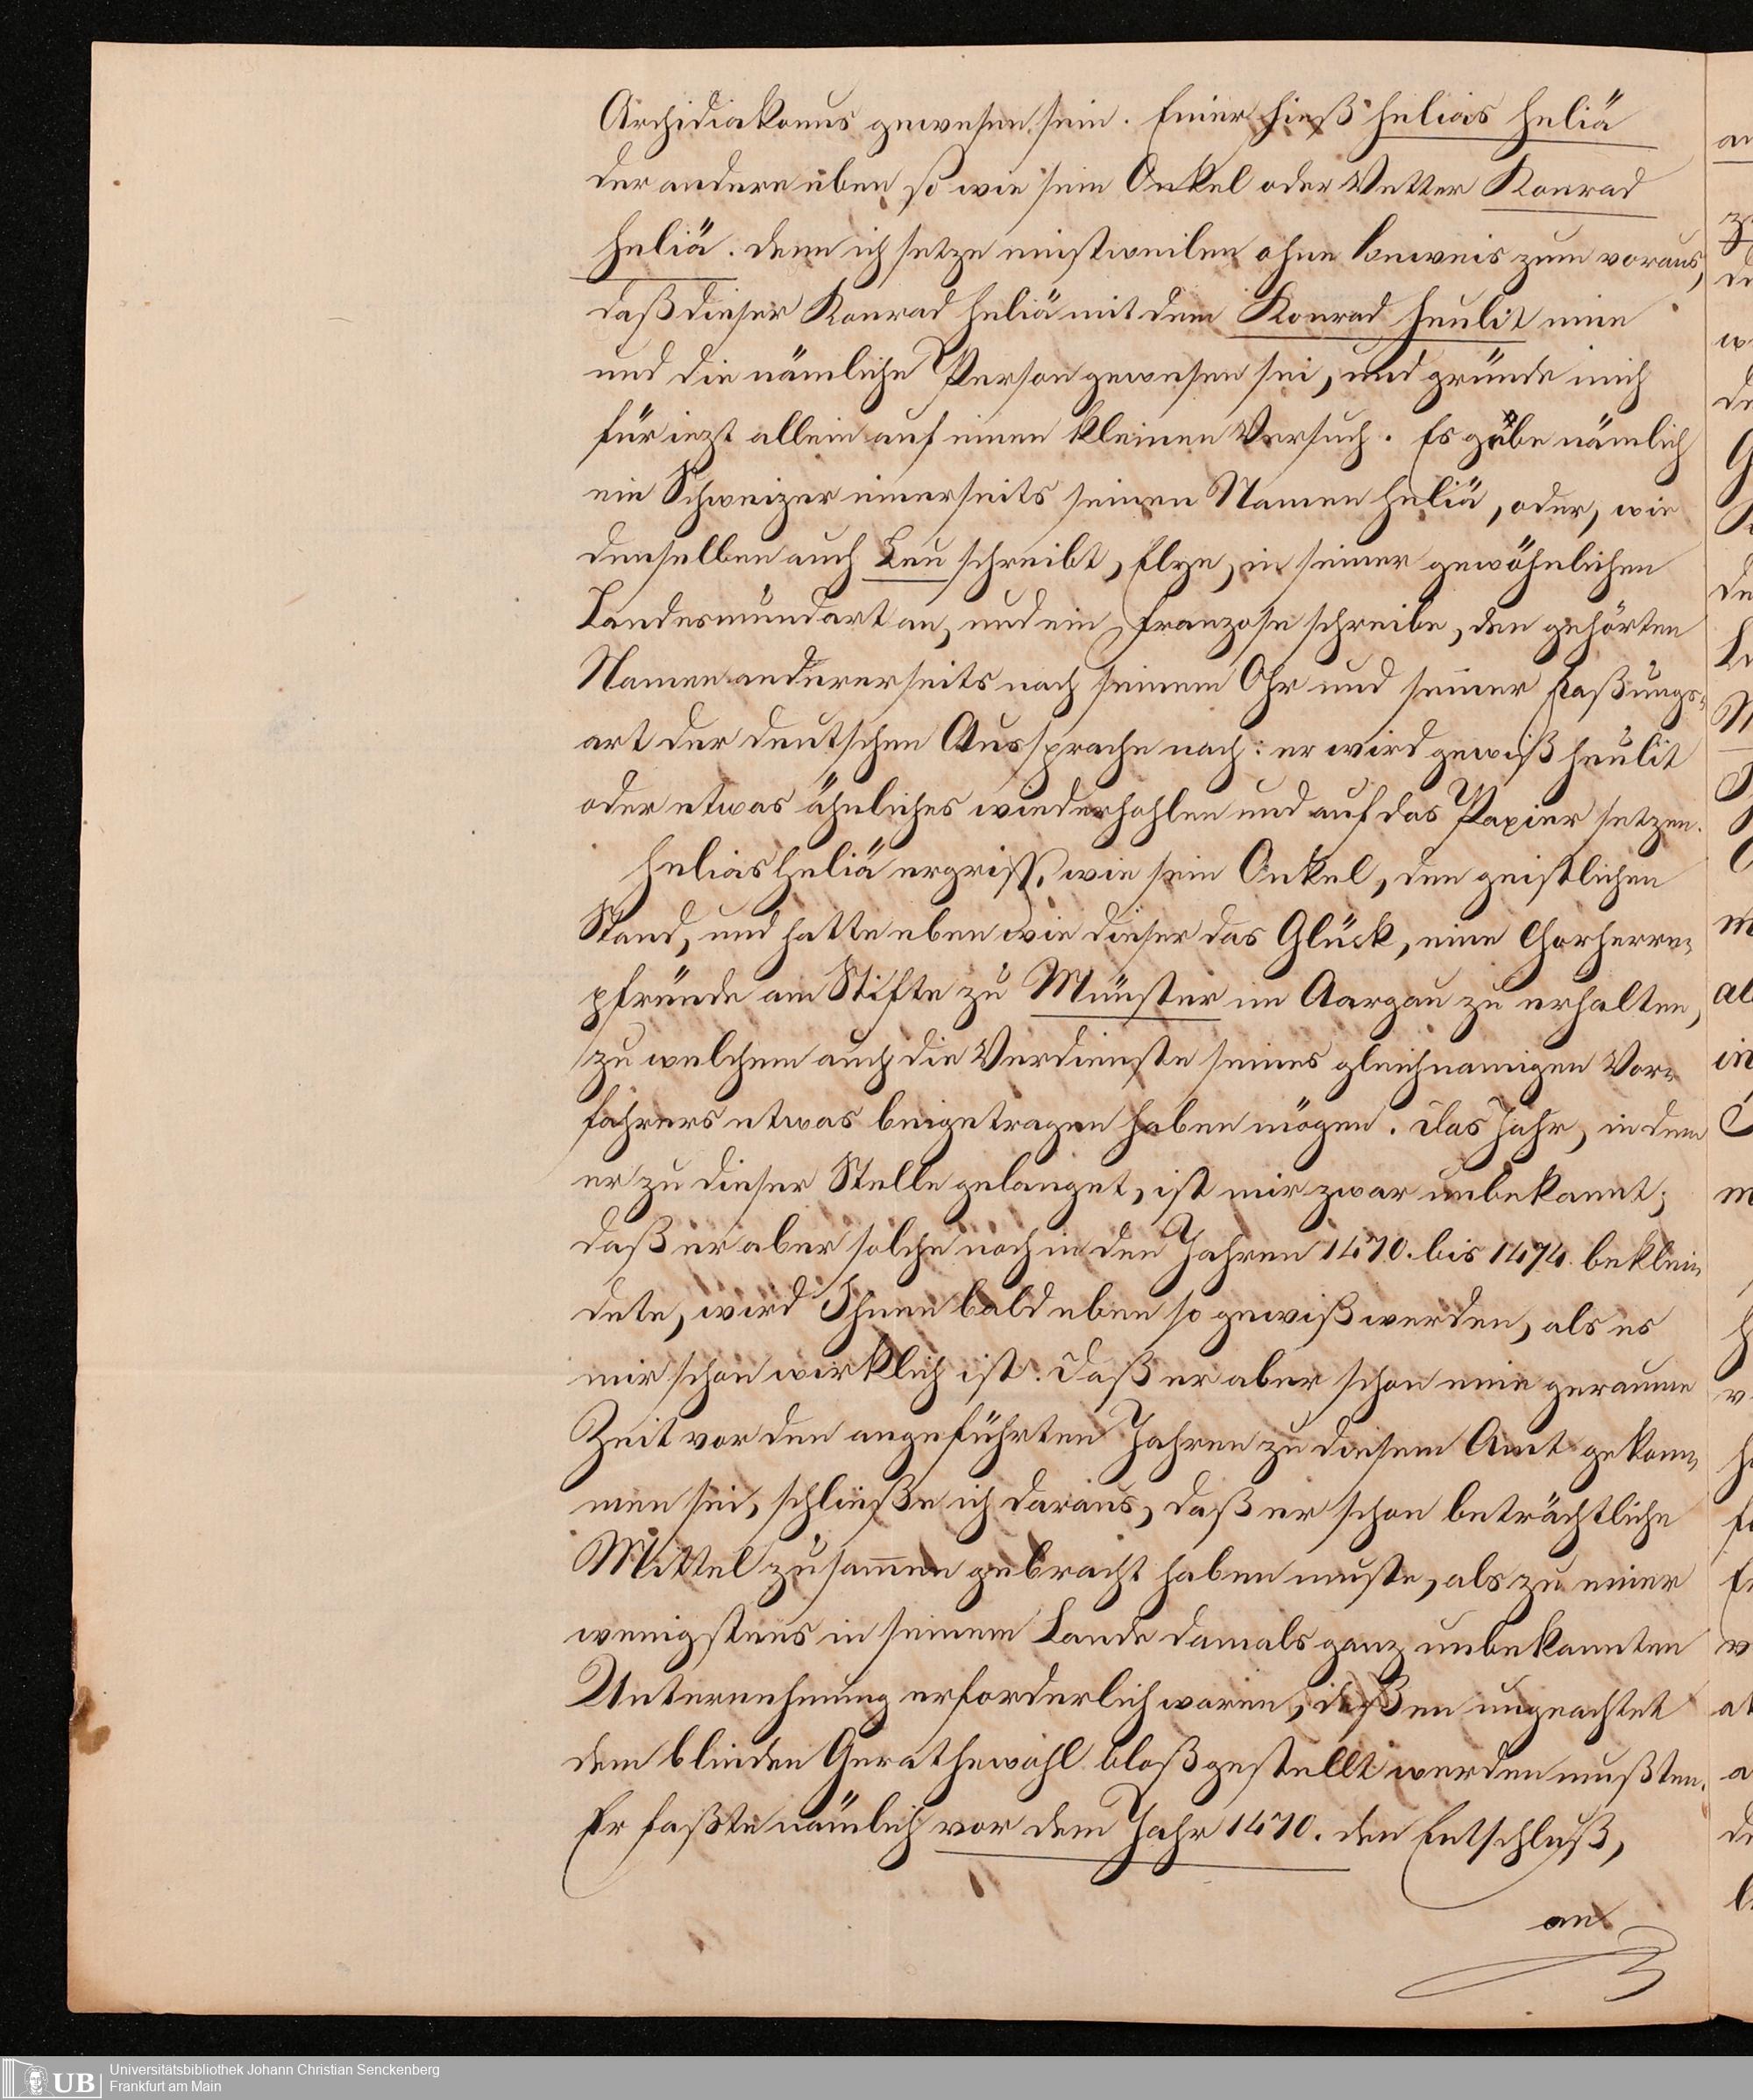 Archidiakonus gewesen sein. Einer hieß Helias Heliä
der andere eben so wie sein Onkel oder Vetter Konrad
Heliä. Denn ich setze einstweilen ohne Beweis zum voraus,
daß dieser Konrad Heliä mit dem Konrad Heulit eine
und die nämliche Person gewesen sei, und gründe mich
für iezt allein auf einen kleinen Versuch. Es gäbe nämlich
ein Schweizer einerseits seinen Namen Heliä, oder, wie
denselben auch Leu schreibt, Elye, in seiner gewöhnlichen
Landesmundart an, und ein Franzose schreibe, den gehörten
Namen andererseits nach seinem Ohr und seiner Faßungs-
art der deutschen Aussprache nach: er wird gewiß Heulit
oder etwas ähnliches wiederhohlen und auf das Papier setzen.
Helias Heliä ergriff, wie sein Onkel, den geistlichen
Stand, und hatte eben wie dieser das Glück, eine Chorherrn-
pfründe am Stifte zu Münster im Aargau zu erhalten,
zu welchem auch die Verdienste seines gleichnamigen Vor-
fahrers etwas beigetragen haben mögen. Das Jahr, in dem
er zu dieser Stelle gelanget, ist mir zwar unbekannt;
daß er aber solche noch in den Jahren 1470. bis 1474. beklei-
dete, wird Ihnen bald eben so gewiß werden, als es
mir schon wirklich ist. Daß er aber schon eine geraume
Zeit vor den angeführten Jahren zu diesem Amt gekom-
men sei, schließe ich daraus, daß er schon beträchtliche
Mittel zusam̄en gebracht haben muste, als zu einer
wenigstens in seinem Lande damals ganz unbekannten
Unternehmung erforderlich waren, deßen ungeachtet
dem blinden Gerathewohl bloßgestellt werden mußten.
Er faßte nämlich vor dem Jahr 1470. den Entschluß,
an
Universitätsbibliothek Johann Christian Senckenberg
UB Frankfurt am Main